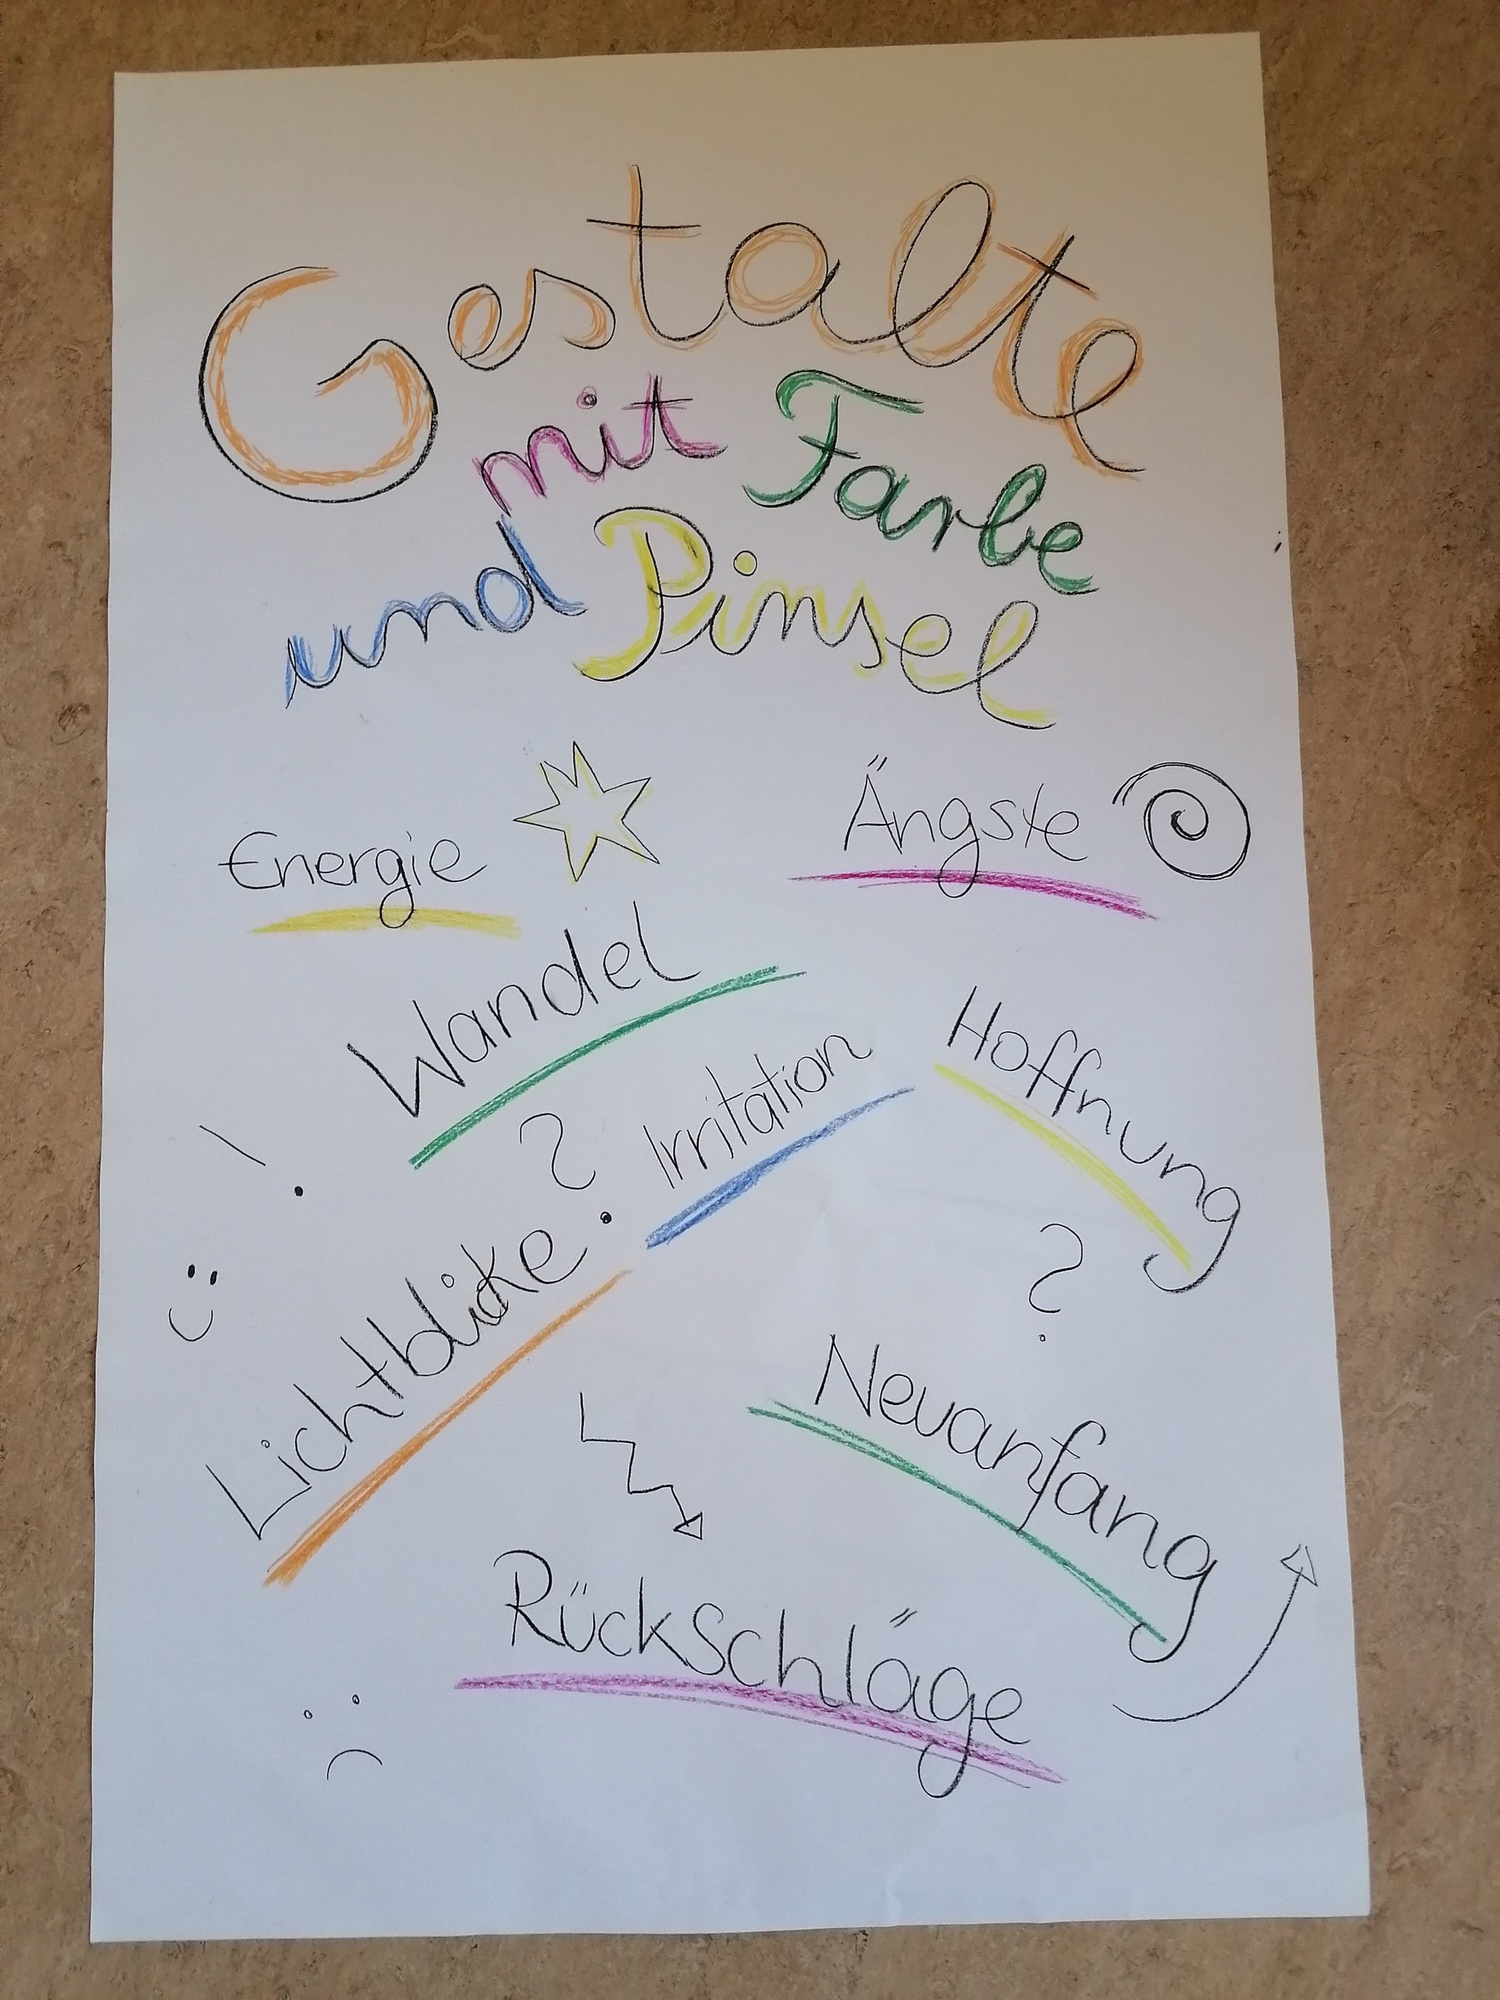 Gestalte
mit Farbe
und Pinsel
Energie
Ängste
Wandel
Hoffnung
!
?
Irritation
Lichtblicke
?
Neuanfang
Rückschläge